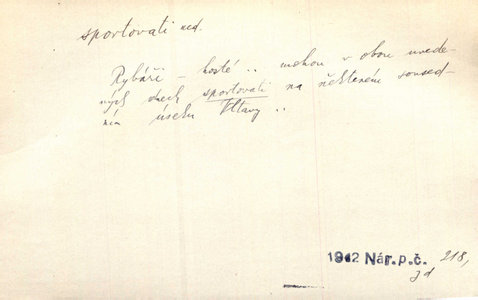 sportovati ned.
Rybáři – hosté .. mohou v obou uvede-
ných dnech sportovati na některém soused-
ním úseku Vltavy ..
1942 Nár.p.č. 218,
jd